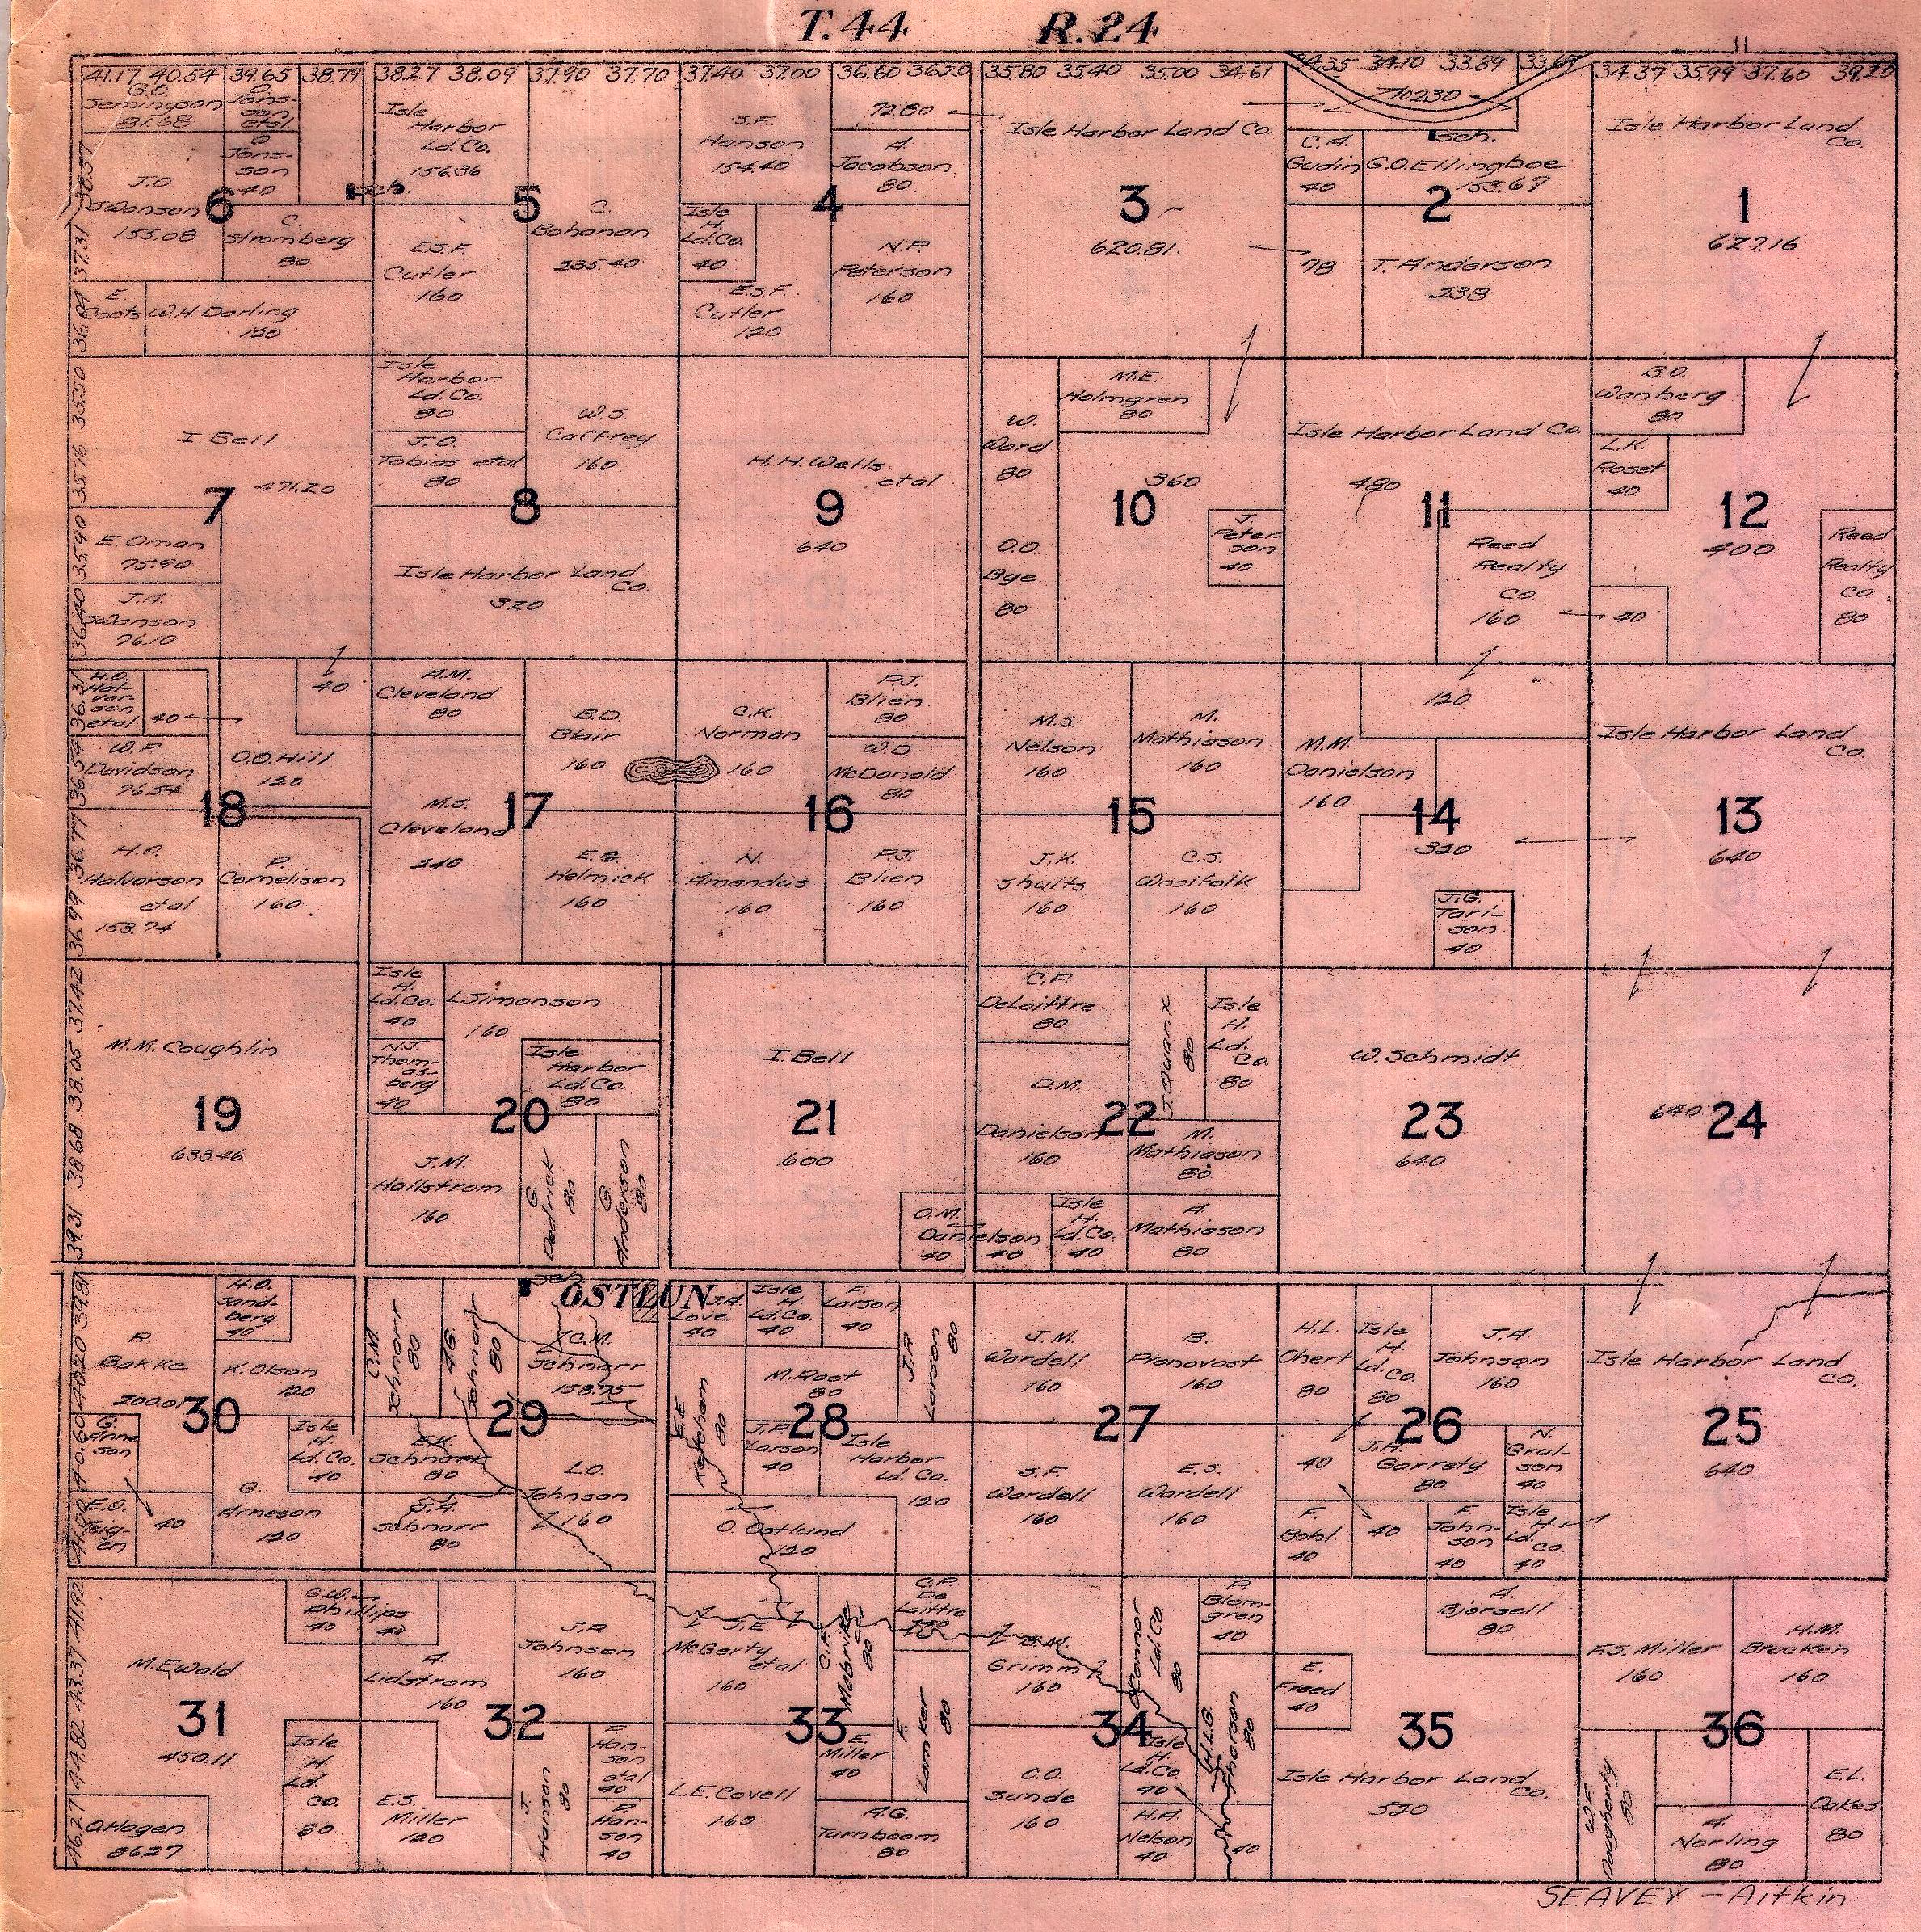 T.44 R.24
41.17 40.54 39.65 38.79 38.27 38.09 37.90 37.70 37.40 37.00 36.60 36.20 35.80 35.40 35.00 34.61 34.35 34.10 33.89 33.69 34.37 35.99 37.60 39.20
G.O.
Semingson
81.68
O.
Jons-
son
etal.
O
Jons-
son
40
J.O.
Swanson
155.08
6
Sch.
C.
Stromberg
80
E.
Coots
W.H. Darling
120
Isle
Harbor
Ld.Co.
156.36
5
E.S.F.
Cutler
160
C.
Bohanan
235.40
S.F.
Hanson
154.40
72.80
A.
Jacobson
80
4
Isle
H.
Ld.Co.
40
N.P.
Peterson
160
E.S.F.
Cutler
120
Isle Harbor Land Co.
3
620.81.
102.30
Sch.
C.A.
Gudin
40
G.O.Ellingboe
153.69
2
78
T. Anderson
238
Isle Harbor Land
Co.
1
627.16
38.57
37.31
36.04
35.50
35.76
35.90
36.40
36.31
36.54
36.77
36.99
37.42
38.05
38.68
39.31
39.91
40.20
40.60
41.00
41.92
43.37
44.82
46.27
I Bell
7
471.20
E. Oman
75.90
J.A.
Swanson
76.10
Isle
Harbor
Ld.Co.
80
J.O.
Tobias etal
80
W.S.
Caffrey
160
8
Isle Harbor Land
Co.
320
H.H.Wells
etal
9
640
W.
Ward
80
M.E.
Holmgren
80
10
360
O.O.
Bye
80
J.
Peter-
son
40
Isle Harbor Land Co.
480
11
Reed
Realty
Co.
160
G.O.
Wanberg
80
L.K.
Roset
40
12
400
Reed
Realty
Co
80
40
H.O.
Hal-
vor-
son
etal
40
40
W.P
Davidson
76.54
O.O.Hill
120
18
H.O.
Halvorson
etal
153.74
P.
Cornelison
160
A.M.
Cleveland
80
B.D.
Blair
160
M.S.
Cleveland
240
17
E.G.
Helmick
160
C.K.
Norman
160
P.J.
Blien
80
W.D
McDonald
80
16
N.
Amandus
160
P.J.
Blien
160
M.S.
Nelson
160
M.
Mathiason
160
15
J.K.
Shults
160
C.S.
Woolfolk
160
120
M.M.
Danielson
160
14
320
J.G.
Tari-
son
40
Isle Harbor Land
Co.
13
640
M.M. Coughlin
19
633.46
Isle
H.
Ld.Co.
40
L.Simonson
160
N.J.
Thom-
as-
berg
40
Isle
Harbor
Ld.Co.
80
20
J.M.
Hallstrom
160
G.
Dedrick
80
G.
Anderson
80
I. Bell
21
600
O.M.
Danielson
40 40
C.P.
DeLaittre
80
J. Quanx
80
Isle
H.
Ld.
Co.
80
O.M.
Danielson
160
22
M.
Mathiason
80
Isle
H.
Ld.Co.
40
A.
Mathiason
80
W.Schmidt
23
640
640
24
R.
Bakke
200.01
H.O.
Sand-
berg
40
K.Olson
120
30
G.
Arne
son
E.O.
Teig-
en
40
Isle
H.
Ld.Co.
40
G.
Arneson
120
Sch.
OSTLUN
C.M.
Schnarr
80
A.G.
Schnarr
80
C.M.
Schnarr
158.75
29
E.K.
Schnarr
80
G.A.
Schnarr
80
L.O.
Johnson
160
J.A.
Love
40
Isle
H.
Ld.Co.
40
F.
Larson
40
J.P.
Larson
80
M.Root
80
E.E
Ketcham
80
28
J.P.
Larson
40
Isle
Harbor
Ld.Co.
120
O. Ostlund
120
J.M.
Wardell
160
B.
Pronovost
160
27
S.F.
Wardell
160
E.S.
Wardell
160
H.L.
Ohert
80
Isle
H.
Ld.
Co.
80
J.A.
Johnson
160
26
40
J.H.
Garrety
80
N.
Grul-
son
40
F.
Bohl
40
40
F
John-
son
40
Isle
H.
Ld.
Co.
40
Isle Harbor Land
Co.
25
640
M.Ewald
G.W.
Phillips
40 40
31
450.11
O.Hagen
86.27
Isle
H.
Ld.
Co.
80
A.
Lidstrom
160
J.P.
Johnson
160
32
E.S.
Miller
120
J.
Hanson
80
P.
Han-
son
etal
40
P.
Han-
son
40
J.E.
McGerty
etal
160
C.F.
Mabrike
80
C.P.
De
Laittre
33
E.
Miller
40
F.
Lamker
80
L.E.Covell
160
A.G.
Turnboom
80
Grimm
160
Ld.Co.
80
P.
Blomgren
40
34
O.O.
Sunde
160
Isle
H.
Ld.Co
40
H.A.
Nelson
40
H.L.G.
Thorson
80
40
A.
Bjorsell
80
E.
Freed
40
35
Isle Harbor Land
Co.
520
F.J. Miller
160
H.M.
Bracken
160
36
W.F.
Dougherty
80
A.
Norling
80
E.L.
Oakes
80
SEAVEY – Aitkin